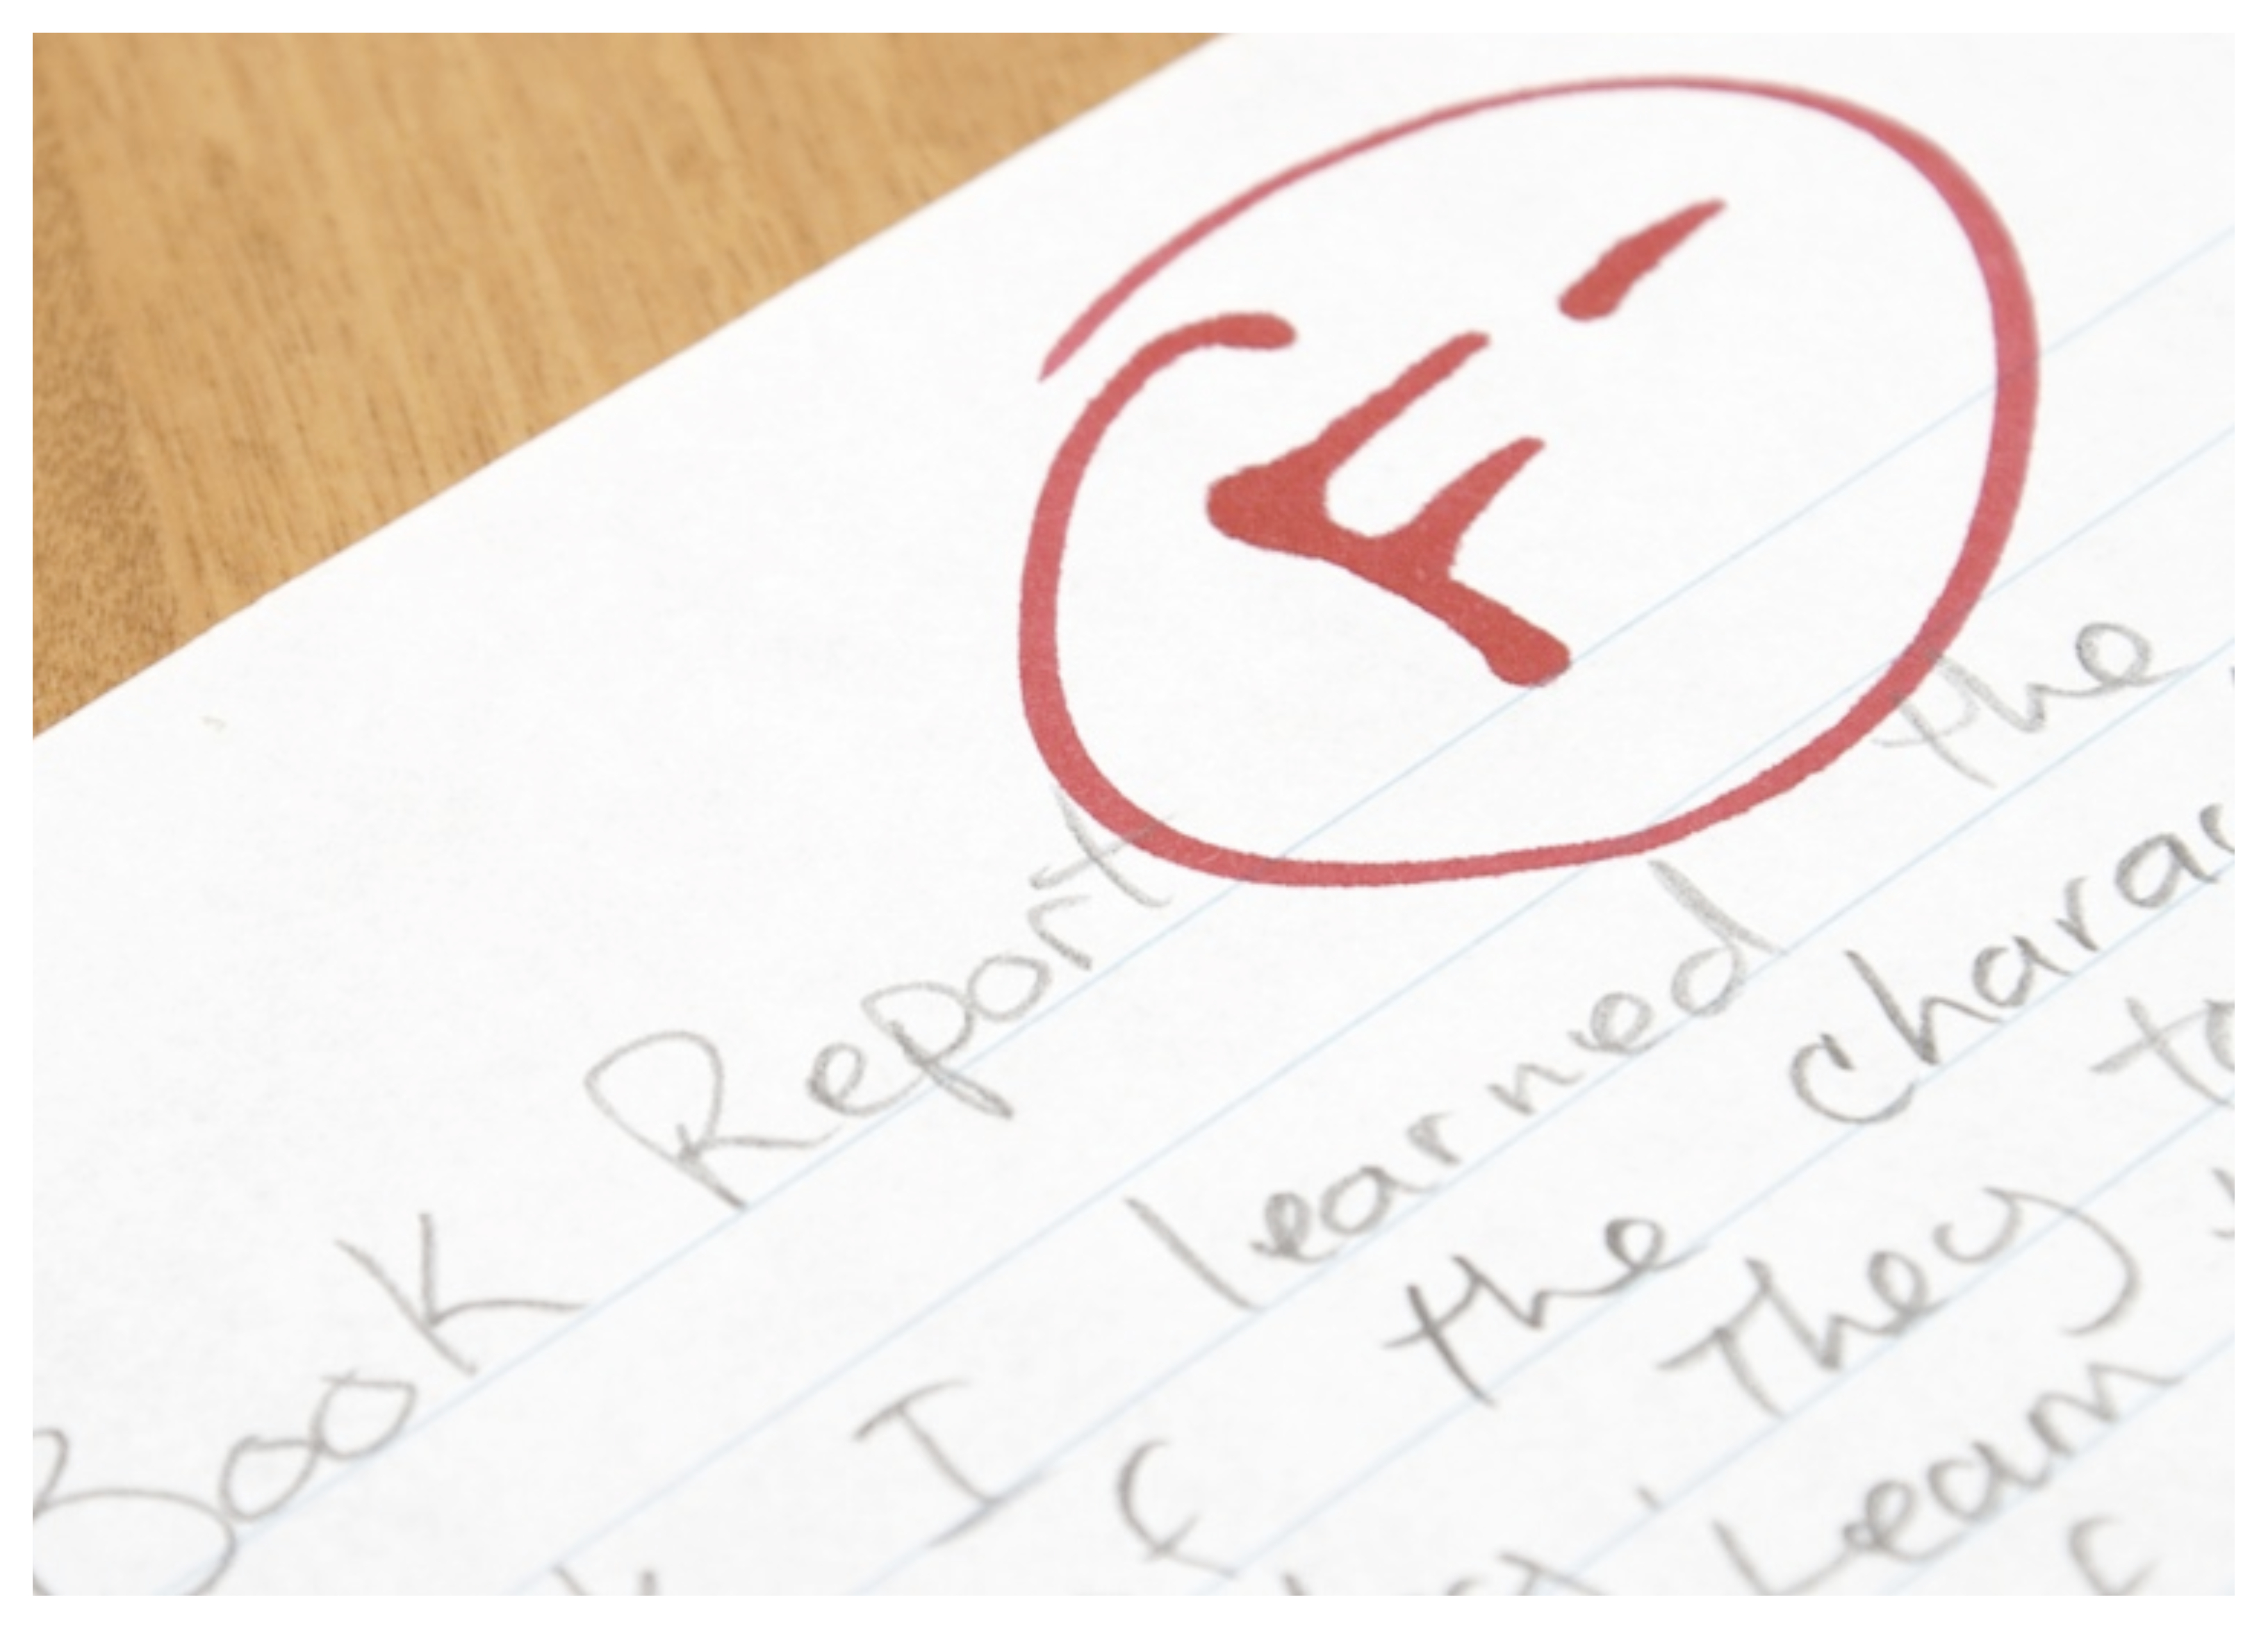 F-
Book Report
I learned the
the charac
They to
Learn